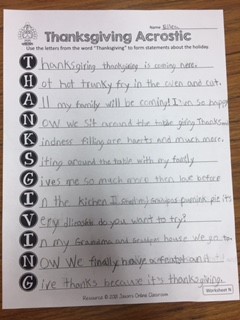 Name Ellen
Thanksgiving Acrostic
Use the letters from the word "Thanksgiving" to form statements about the holiday
Thanksgiving thanksgiving is coming here.
Hot hot trunky fry in the oven and eat.
All my family will be coming! I'm so happy
Now we sit around the table giving thanks
Kindness filling are harts and much more.
Siting around the table with my family
Gives me so much more then love before
In the kichen I grampas pumkin pie its
Very do you want to try?
In my Grandma and Grampa house we
Now We finally have a and
Give thanks because it's thanksgiving.
Resource © 2015 Clarion Online Classroom
Worksheet